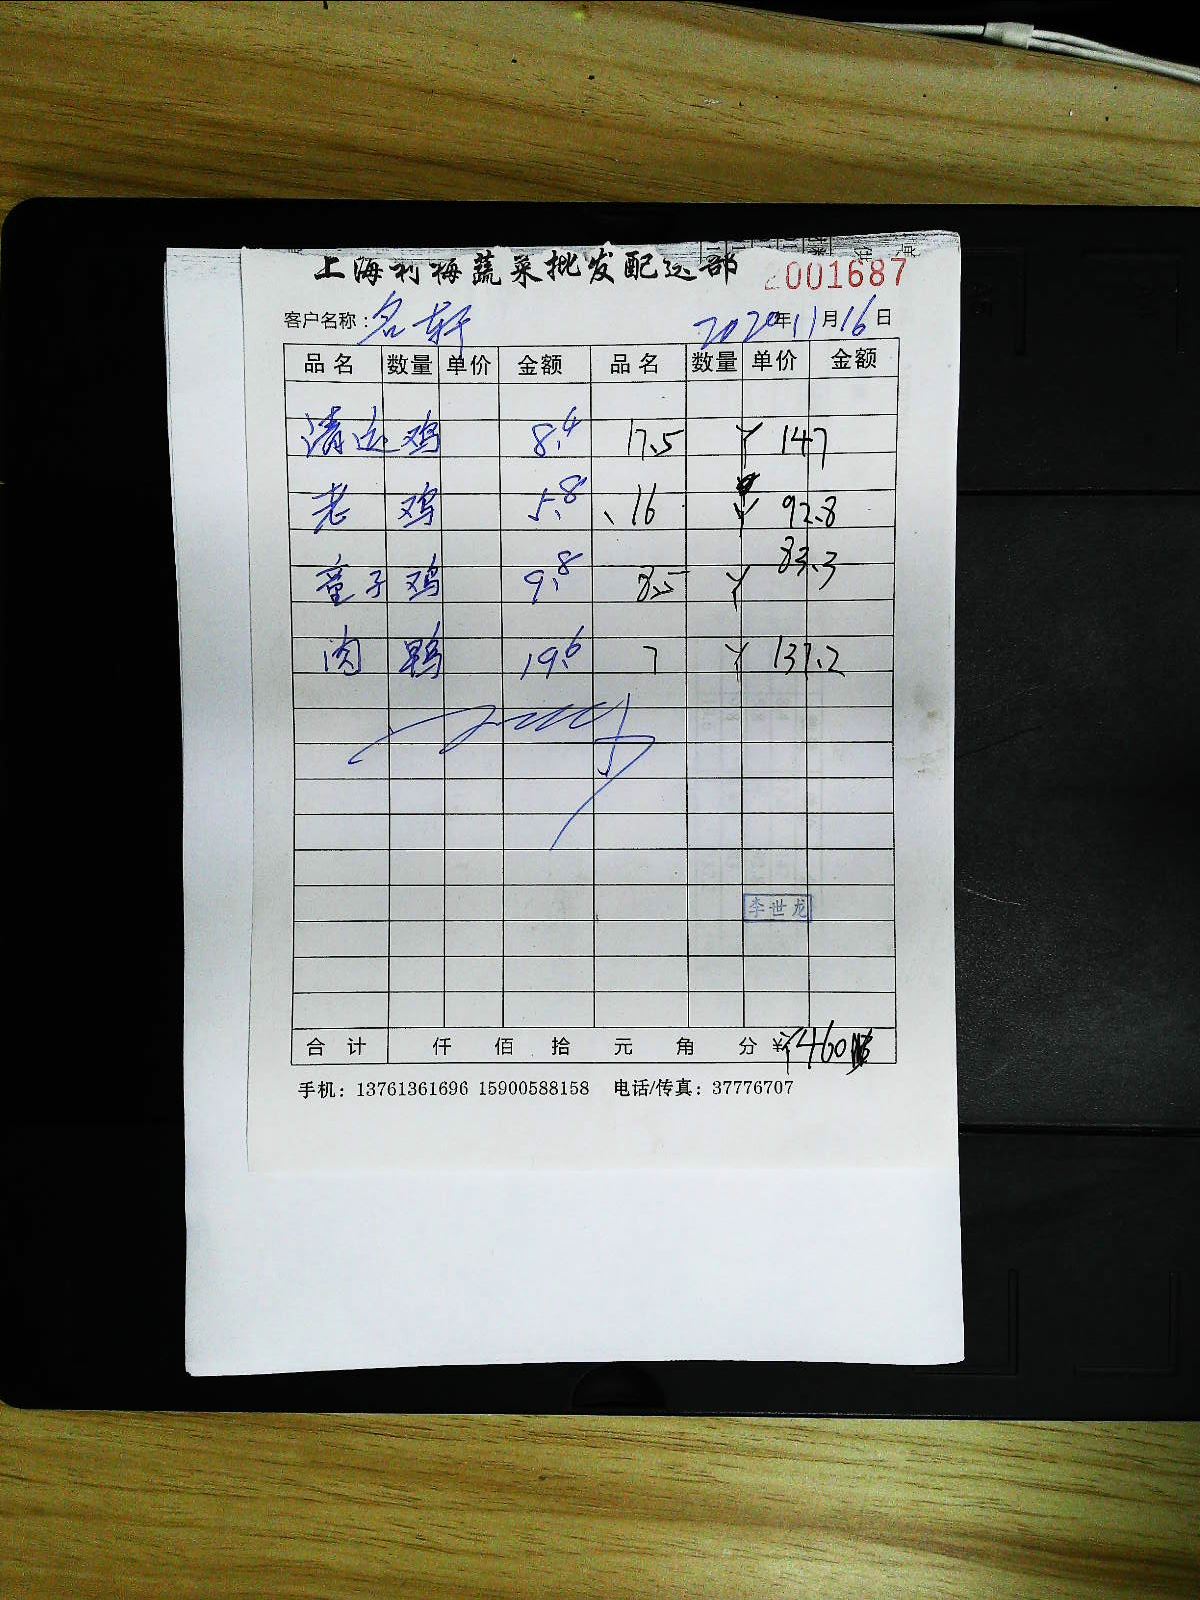 上海利梅蔬菜批发配送部 2001687
客户名称：名轩 2020年11月16日
品名 数量 单价 金额 品名 数量 单价 金额
清远鸡 8.4 17.5 ¥ 147
老鸡 5.8 、16 ¥ 92.8
童子鸡 9.8 8.5 ¥ 83.3
肉鸭 19.6 7 ¥ 137.2
李世龙
合计 仟 佰 拾 元 角 分 ¥ ¥460
手机：13761361696 15900588158 电话/传真：37776707